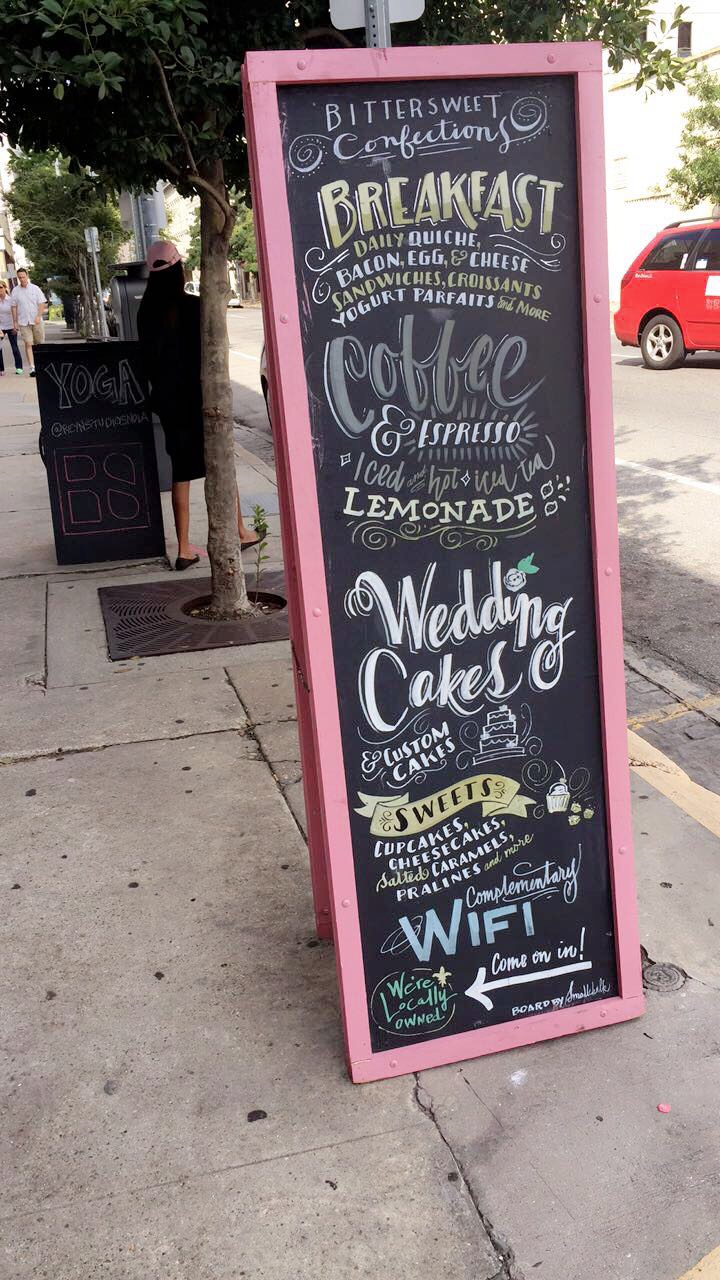 BITTERSWEET
Confections
BREAKFAST
DAILY QUICHE,
BACON, EGG, & CHEESE
SANDWICHES, CROISSANTS
YOGURT PARFAITS and MORE
Coffee
& ESPRESSO
Iced and hot iced tea
LEMONADE
Wedding
Cakes
& CUSTOM
CAKES
SWEETS
CUPCAKES,
CHEESECAKES,
Salted CARAMELS,
PRALINES and more
Complementary
WIFI
Come on in!
We're
Locally
OWNED
BOARD BY Smallchalk
YOGA